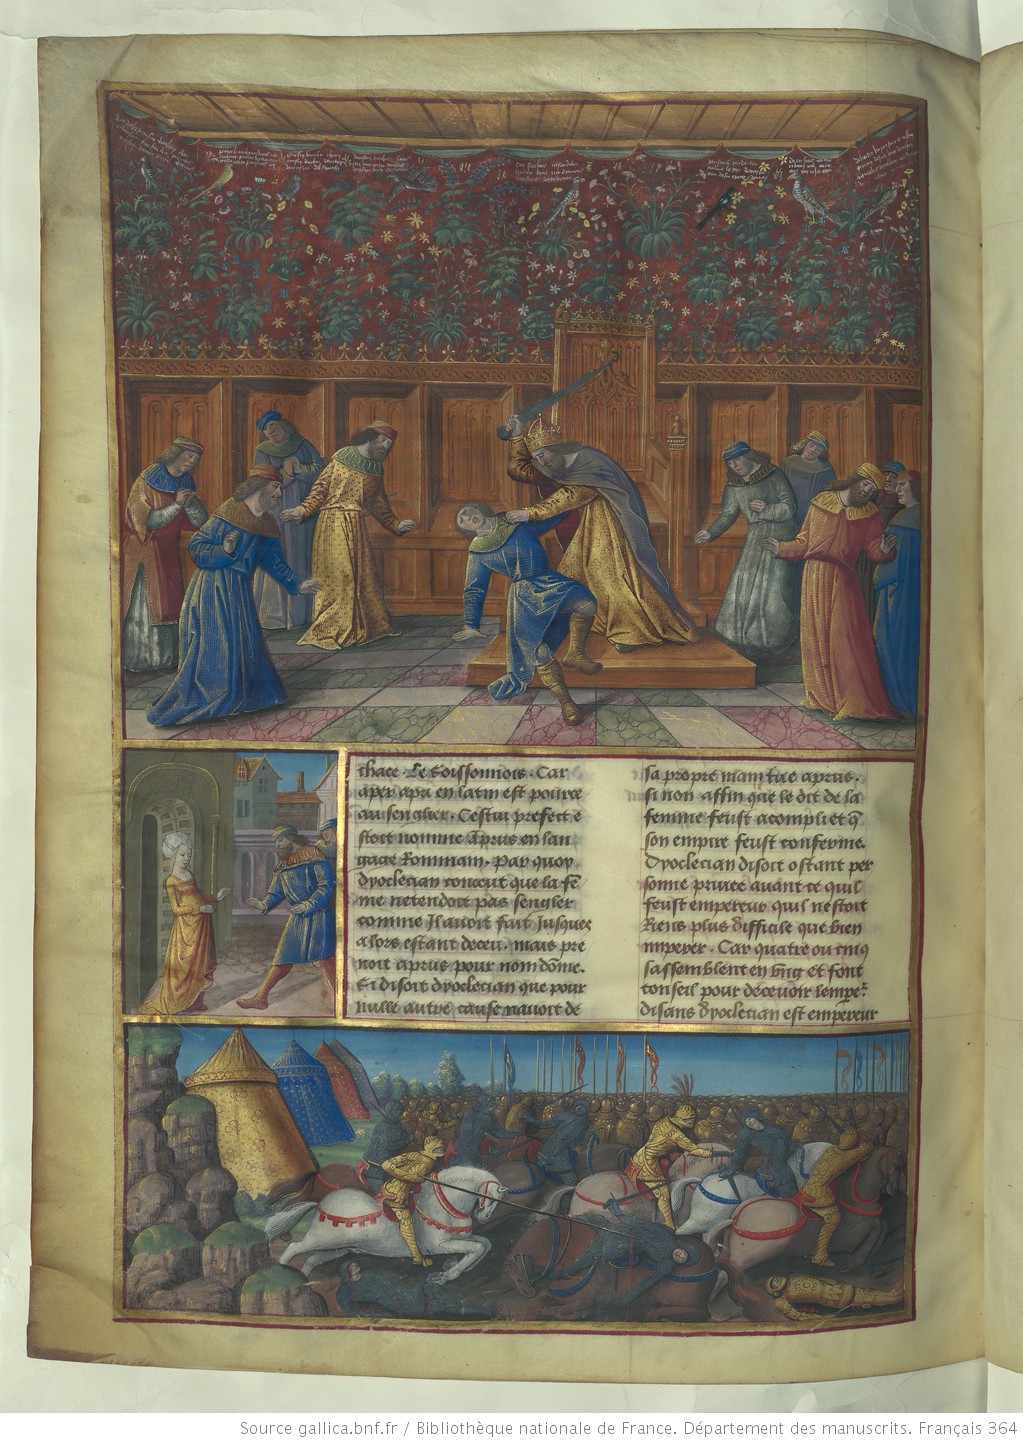 chaee. Le Soissonnois. Car
aper apri en latin est pource
au senglier. Cestui prefect e
stoit nomme Aprus en lan
gage Rommain. par quoy
dyoclecian conceut que la fe
me nentendoit pas sengler
comme Il auoit fait Jusques
alors estant deceu. mais pre
noit aprus pour nom dõme.
Si disoit dyoclecian que pour
nulle autre cause nauoit de
sa propre main tue aprus.
si non affin que le dit de la
femme feust acompli et q̃
son empire feust conferme.
Dyoclecian disoit estant per
sonne priuee auant ce quil
feust empereur quil nestoit
Riens plus difficile que bien
imperer. Car quatre ou cinq
sassemblent en vng et font
conseil pour deceuoir lempe.
disans dyoclecian est empereur
Source gallica.bnf.fr / Bibliothèque nationale de France. Département des manuscrits. Français 364